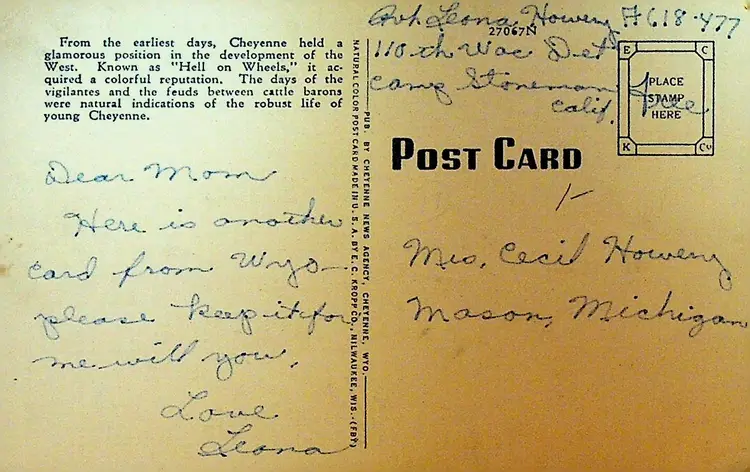 From the earliest days, Cheyenne held a
glamorous position in the development of the
West. Known as "Hell on Wheels," it ac-
quired a colorful reputation. The days of the
vigilantes and the feuds between cattle barons
were natural indications of the robust life of
young Cheyenne.
Dear Mom
Here is another
card from Wyo—
please keep it for
me will you,
Love
Leona
NATURAL COLOR POST CARD MADE IN U. S. A. BY E. C. KROPP CO., MILWAUKEE, WIS.-(FBY)
PUB. BY CHEYENNE NEWS AGENCY, CHEYENNE, WYO.
Pvt. Leona Howery A618-477
27067N
110th Wac Det
Camp Stoneman
Calif.
Free
E C
PLACE
STAMP
HERE
K Co
POST CARD
Mrs. Cecil Howery
Mason, Michigan